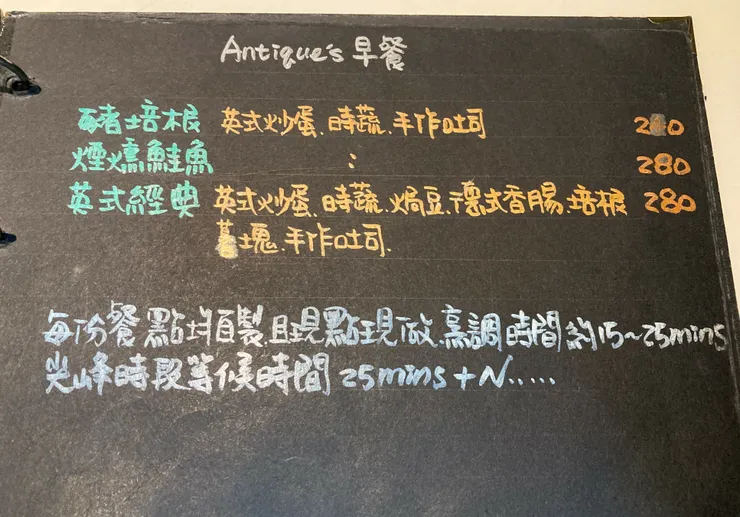 Antique's 早餐
豬培根 英式炒蛋、時蔬、手作吐司 280
煙燻鮭魚 : 280
英式經典 英式炒蛋、時蔬、焗豆、德式香腸、培根 280
薯塊、手作吐司.
每份餐點均自製、且現點現做、烹調時間約15~25mins
尖峰時段等候時間 25mins + N.....